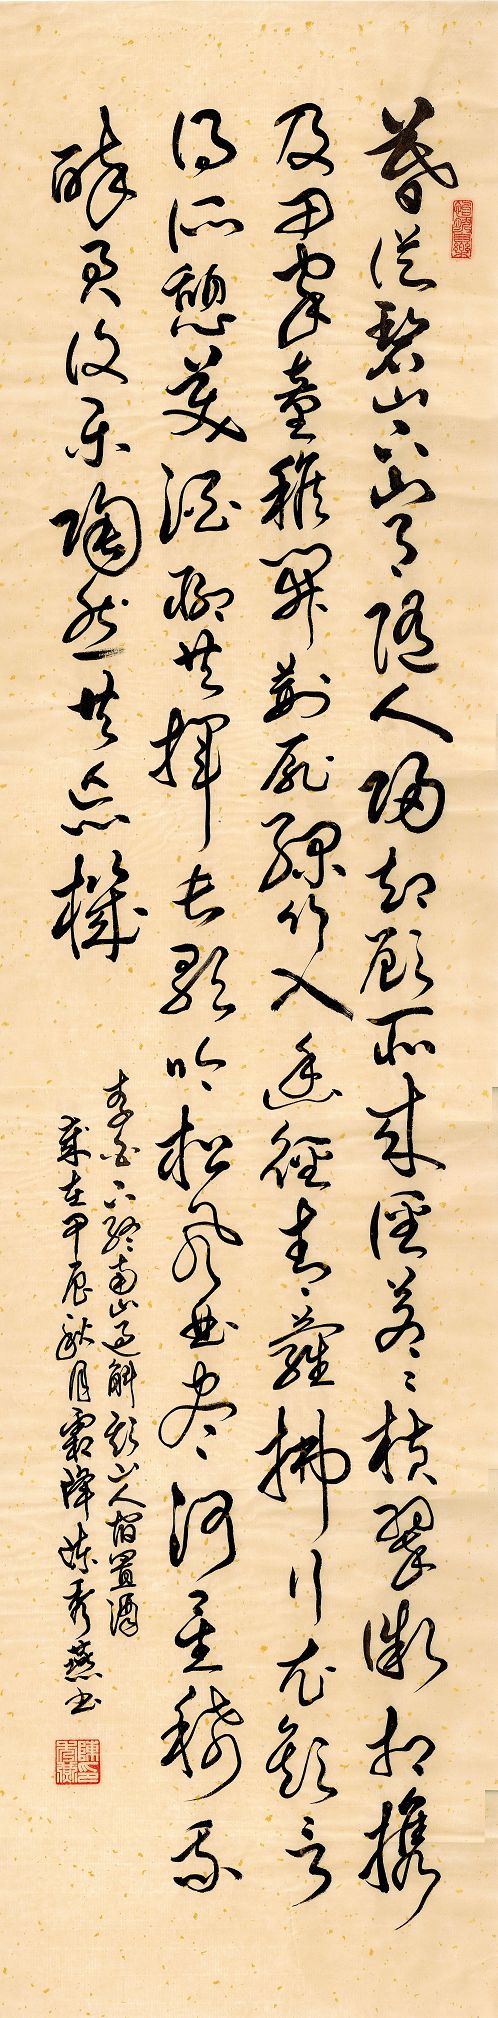 暮從碧山下山月隨人歸却顧所來徑蒼々橫翠微相攜
及田家童稚開荊扉綠竹入幽徑青蘿拂行衣歡言
得所憩美酒聊共揮長歌吟松風曲盡河星稀我
醉君復樂陶然共忘機
李白下終南山過斛斯山人宿置酒
歲在甲辰秋月霜降陳秀燕書
陳印秀燕